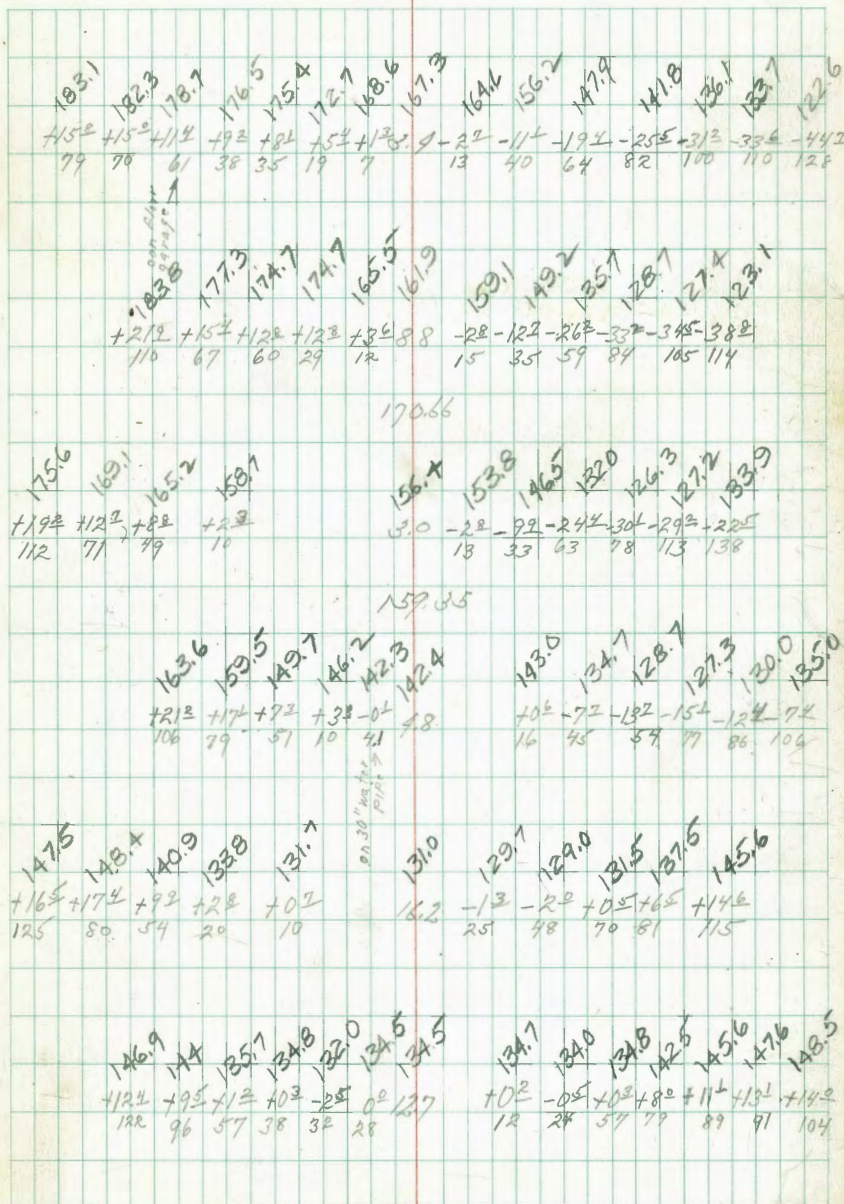 183.1 182.3 178.7 176.5 175.4 172.7 168.6 167.3 164.6 156.2 147.9 141.8 136.1 133.7 122.6
+15⁸ +15⁰ +11⁴ +9² +8¹ +5⁴ +1³ 3.4 -2⁷ -11¹ -19⁴ -25⁵ -31² -33⁶ -44⁷
79 70 61 38 35 19 7 13 40 64 82 100 110 128
garage
183.8 177.3 174.7 174.7 165.5 161.9 159.1 149.2 135.7 128.7 127.4 123.1
+21⁹ +15⁴ +12⁸ +12⁸ +3⁶ 8.8 -2⁸ -12⁷ -26² -33² -34⁵ -38⁸
110 67 60 29 12 15 35 59 84 105 114
170.66
175.6 169.1 165.2 158.7 156.4 153.8 146.5 132.0 126.3 127.2 133.9
+19² +12⁷ +8⁸ +2³ 3.0 -2⁸ -9⁹ -24⁴ -30¹ -29² -22⁵
112 71 49 10 13 33 63 78 113 138
159.35
163.6 159.5 149.7 146.2 142.3 142.4 143.0 134.7 128.7 127.3 130.0 135.0
+21² +17¹ +7³ +3⁸ -0¹ 4.8 +0⁶ -7⁷ -13⁷ -15¹ -12⁴ -7⁴
106 79 51 10 41 16 45 54 77 86 106
on 30" water pipe →
147.5 148.4 140.9 133.8 131.7 131.0 129.7 129.0 131.5 137.5 145.6
+16⁵ +17⁴ +9⁹ +2⁸ +0⁷ 16.2 -1³ -2⁰ +0⁵ +6⁵ +14⁶
125 80 54 20 10 25 48 70 81 115
146.9 144 135.7 134.8 132.0 134.5 134.5 134.7 134.0 134.8 142.5 145.6 147.6 148.5
+12⁴ +9⁵ +1² +0³ -2⁵ 0⁰ 12.7 +0² -0⁵ +0³ +8⁰ +11¹ +13¹ +14⁰
122 96 57 38 32 28 12 24 57 79 89 91 104